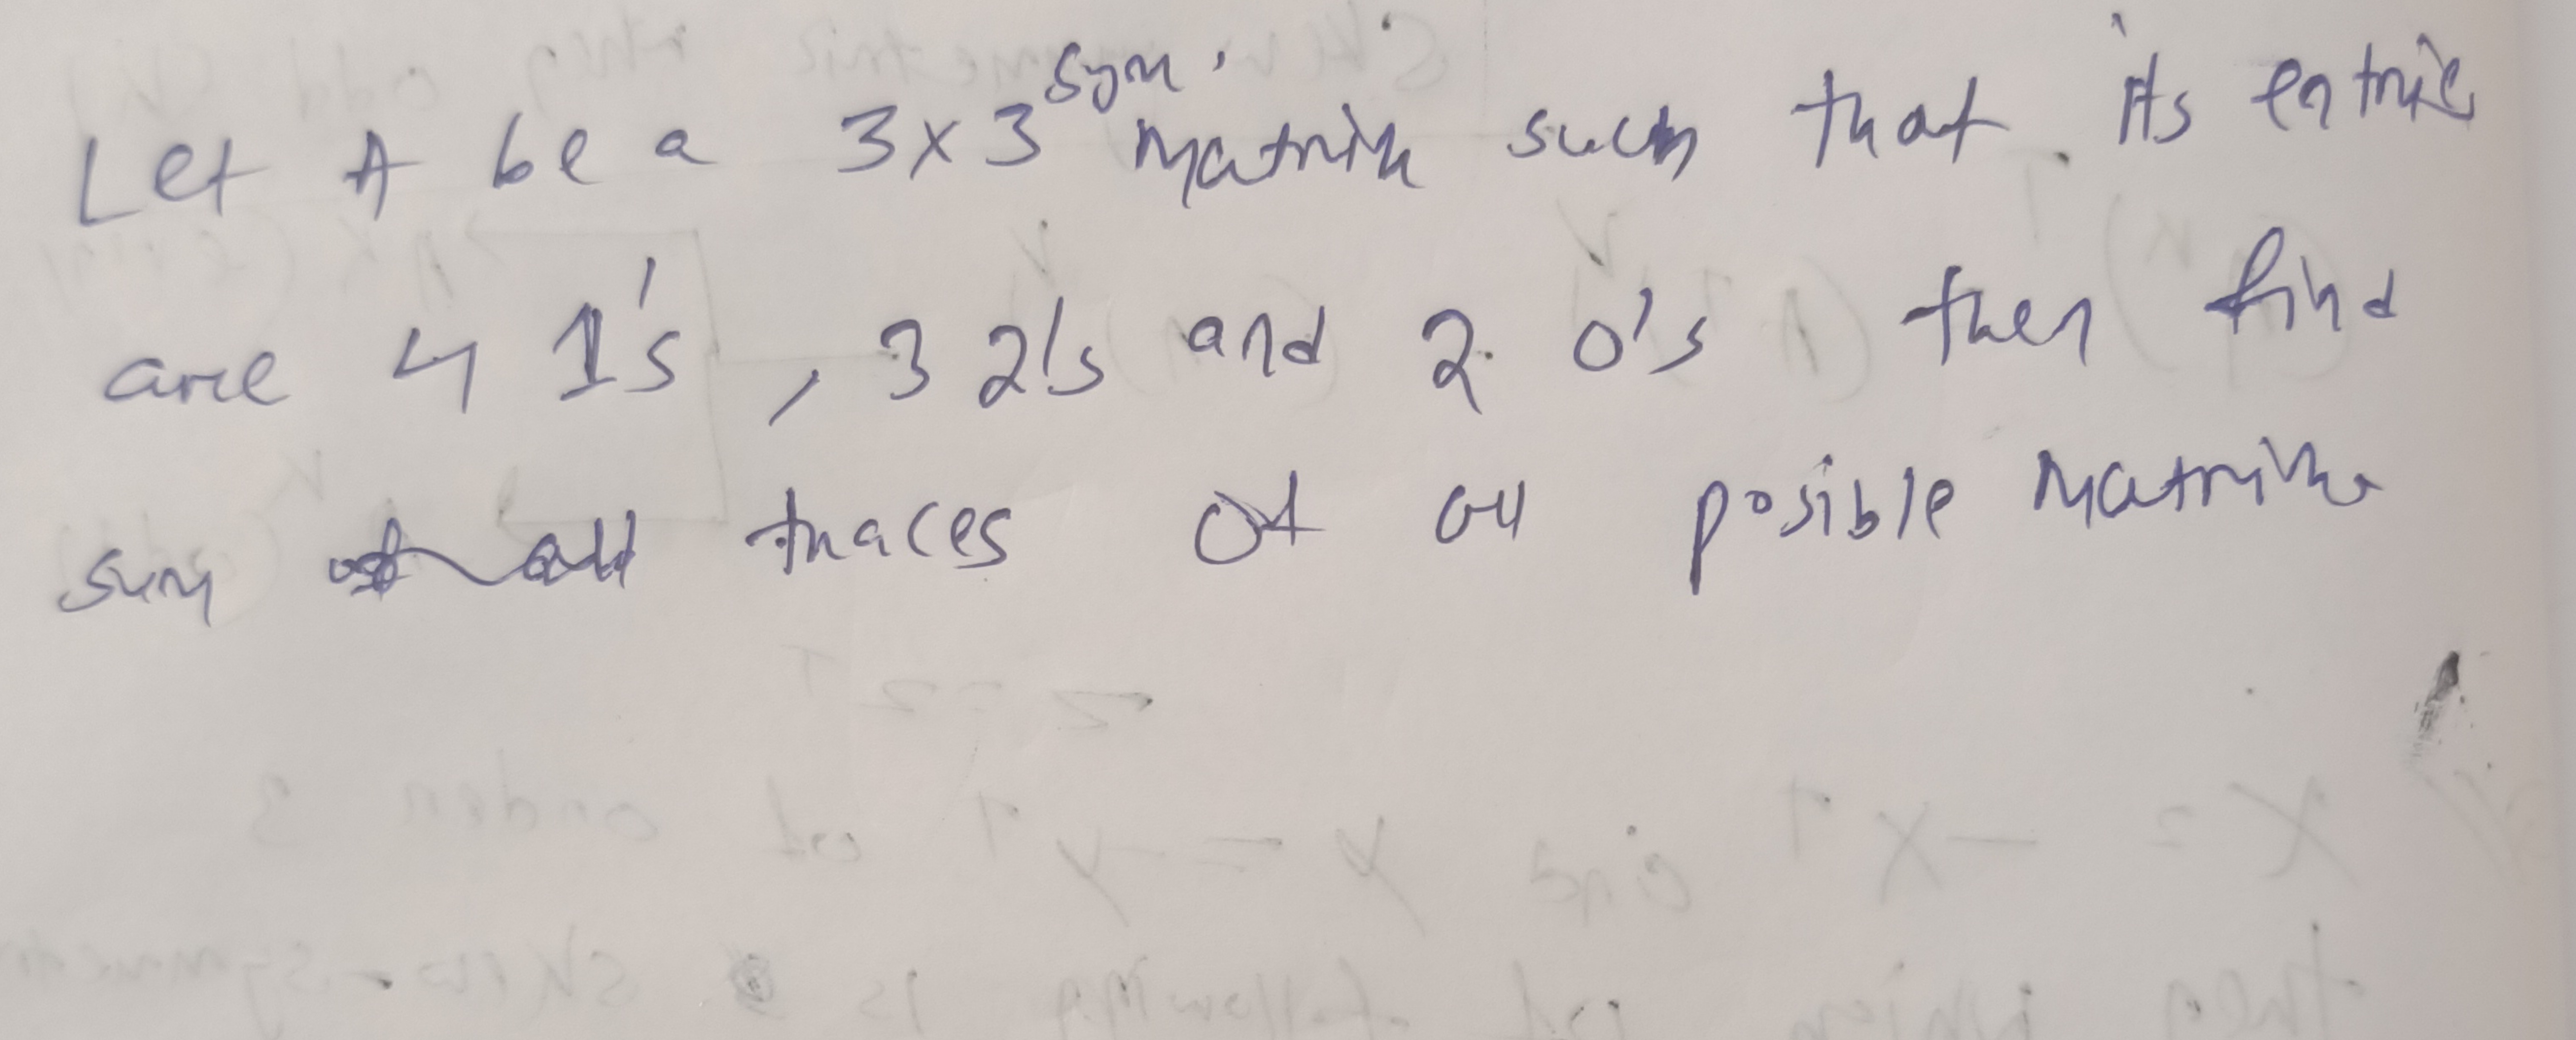 Let A be a 3x3 sym. matrix such that its entrie
are 4 1's, 3 2's and 2 0's then find
sum traces of all posible matrix